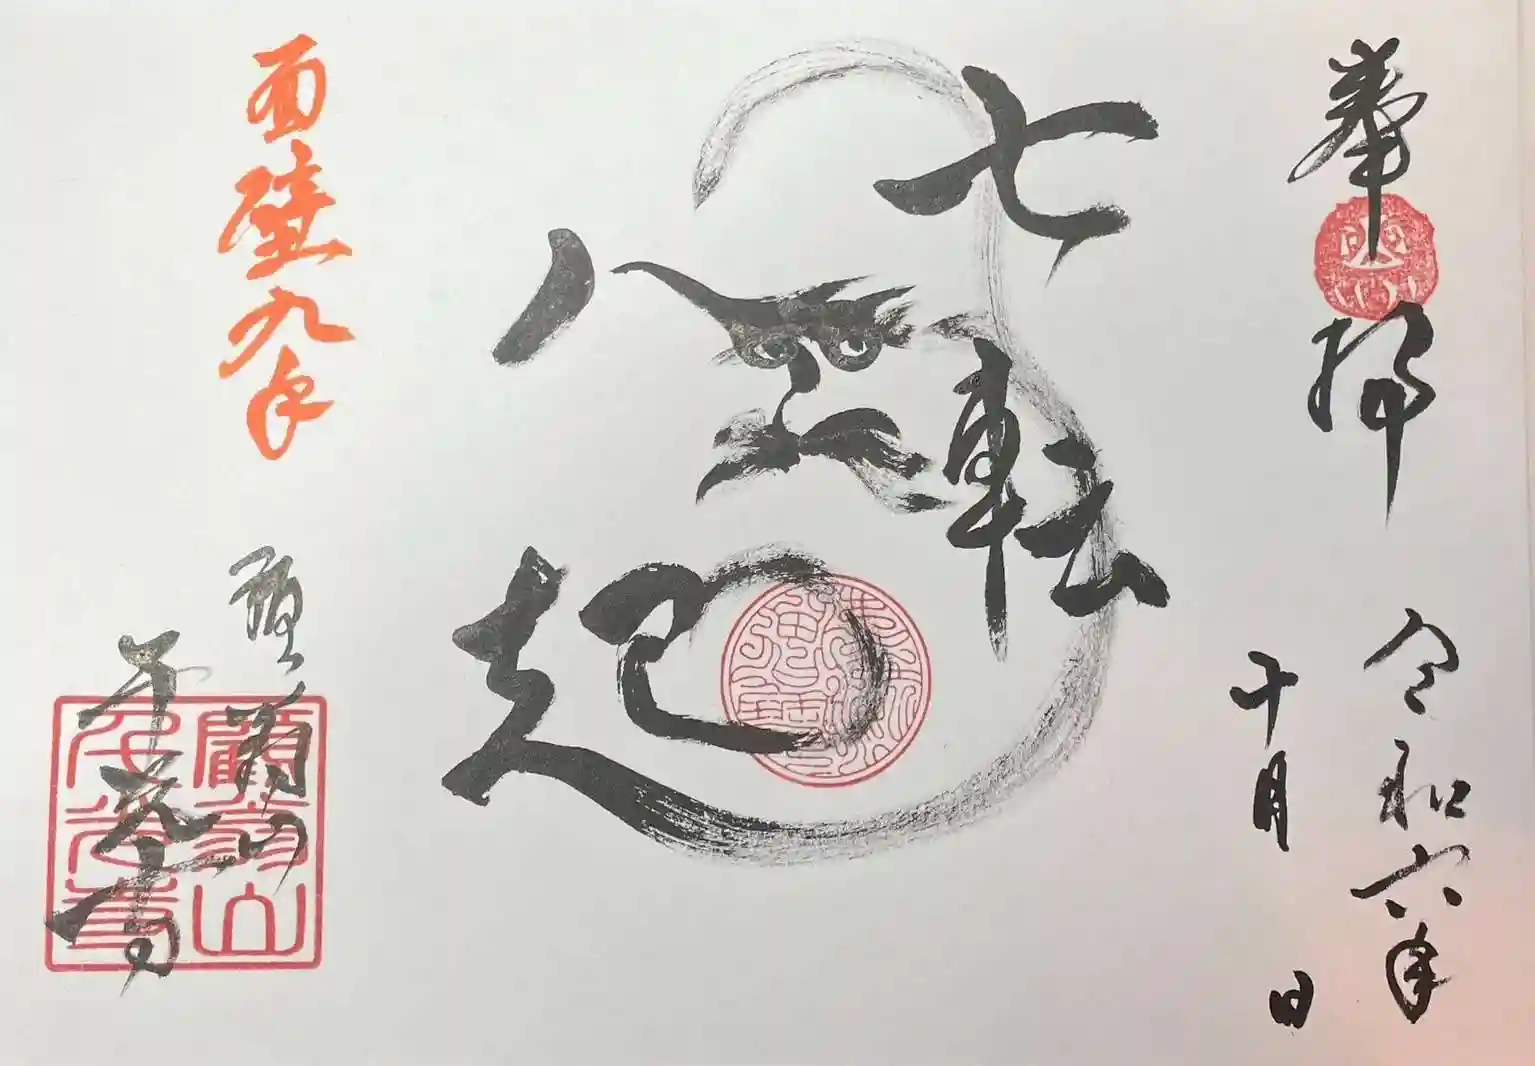 奉拝
令和六年
十月　日
七転
八起
面壁九年
千光寺